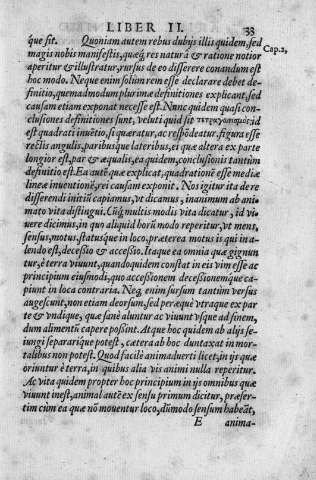 LIBER II. 33
que fit. Quoniam autem rebus dubijs illis quidem, sed Cap. 2,
magis nobis manifestis, quæq́; res natura & ratione notior
aperitur & illustratur, rursus de eo disserere conandum est
hoc modo. Neque enim solùm rem esse declarare debet de
finitio, quemadmodum plurimæ definitiones explicant, sed
causam etiam exponat necesse est. Nunc quidem quasi con-
clusiones definitiones sunt, veluti quid sit τετραγωνισμὸς: id
est quadrati inuẽtio, si quæratur, ac respõdeatur, figura esse
rectis angulis, paribusque lateribus, ei quæ altera ex parte
longior est, par & æqualis, ea quidem, conclusionis tantùm
definitio est. Ea autẽ quæ explicat, quadrationẽ esse mediæ
lineæ inuentionẽ, rei causam exponit. Nos igitur ita de re
disserendi initiũ capiamus, vt dicamus, inanimum ab ani-
mato vita distingui. Cũq́; multis modis vita dicatur, id vi-
uere dicimus, in quo aliquid horũ modo reperitur, vt mens,
sensus, motus, statusque in loco, præterea motus is qui in a-
lendo est, decessio & accessio. Itaque ea omnia quæ gignun
tur, è terra viuunt, quandoquidem constat in eis vim esse ac
principium eiusmodi, quo accessionem decessionemque ca-
piunt in loca contraria. Neq́; enim sursum tantùm versus
augescunt, non etiam deorsum, sed peræquè vtraque ex par
te & vndique, quæ sanè aluntur ac viuunt vsque ad finem,
dum alimentũ capere possint. Atque hoc quidem ab alijs se-
iungi separarique potest, cætera ab hoc duntaxat in mor-
talibus non potest. Quod facilè animaduerti licet, in ijs quæ
oriuntur è terra, in quibus alia vis animi nulla reperitur.
Ac vita quidem propter hoc principium in ijs omnibus quæ
viuunt inest, animal autẽ ex sensu primum dicitur, præser-
tim cùm ea quæ nõ mouentur loco, dũmodo sensum habeãt,
E anima-